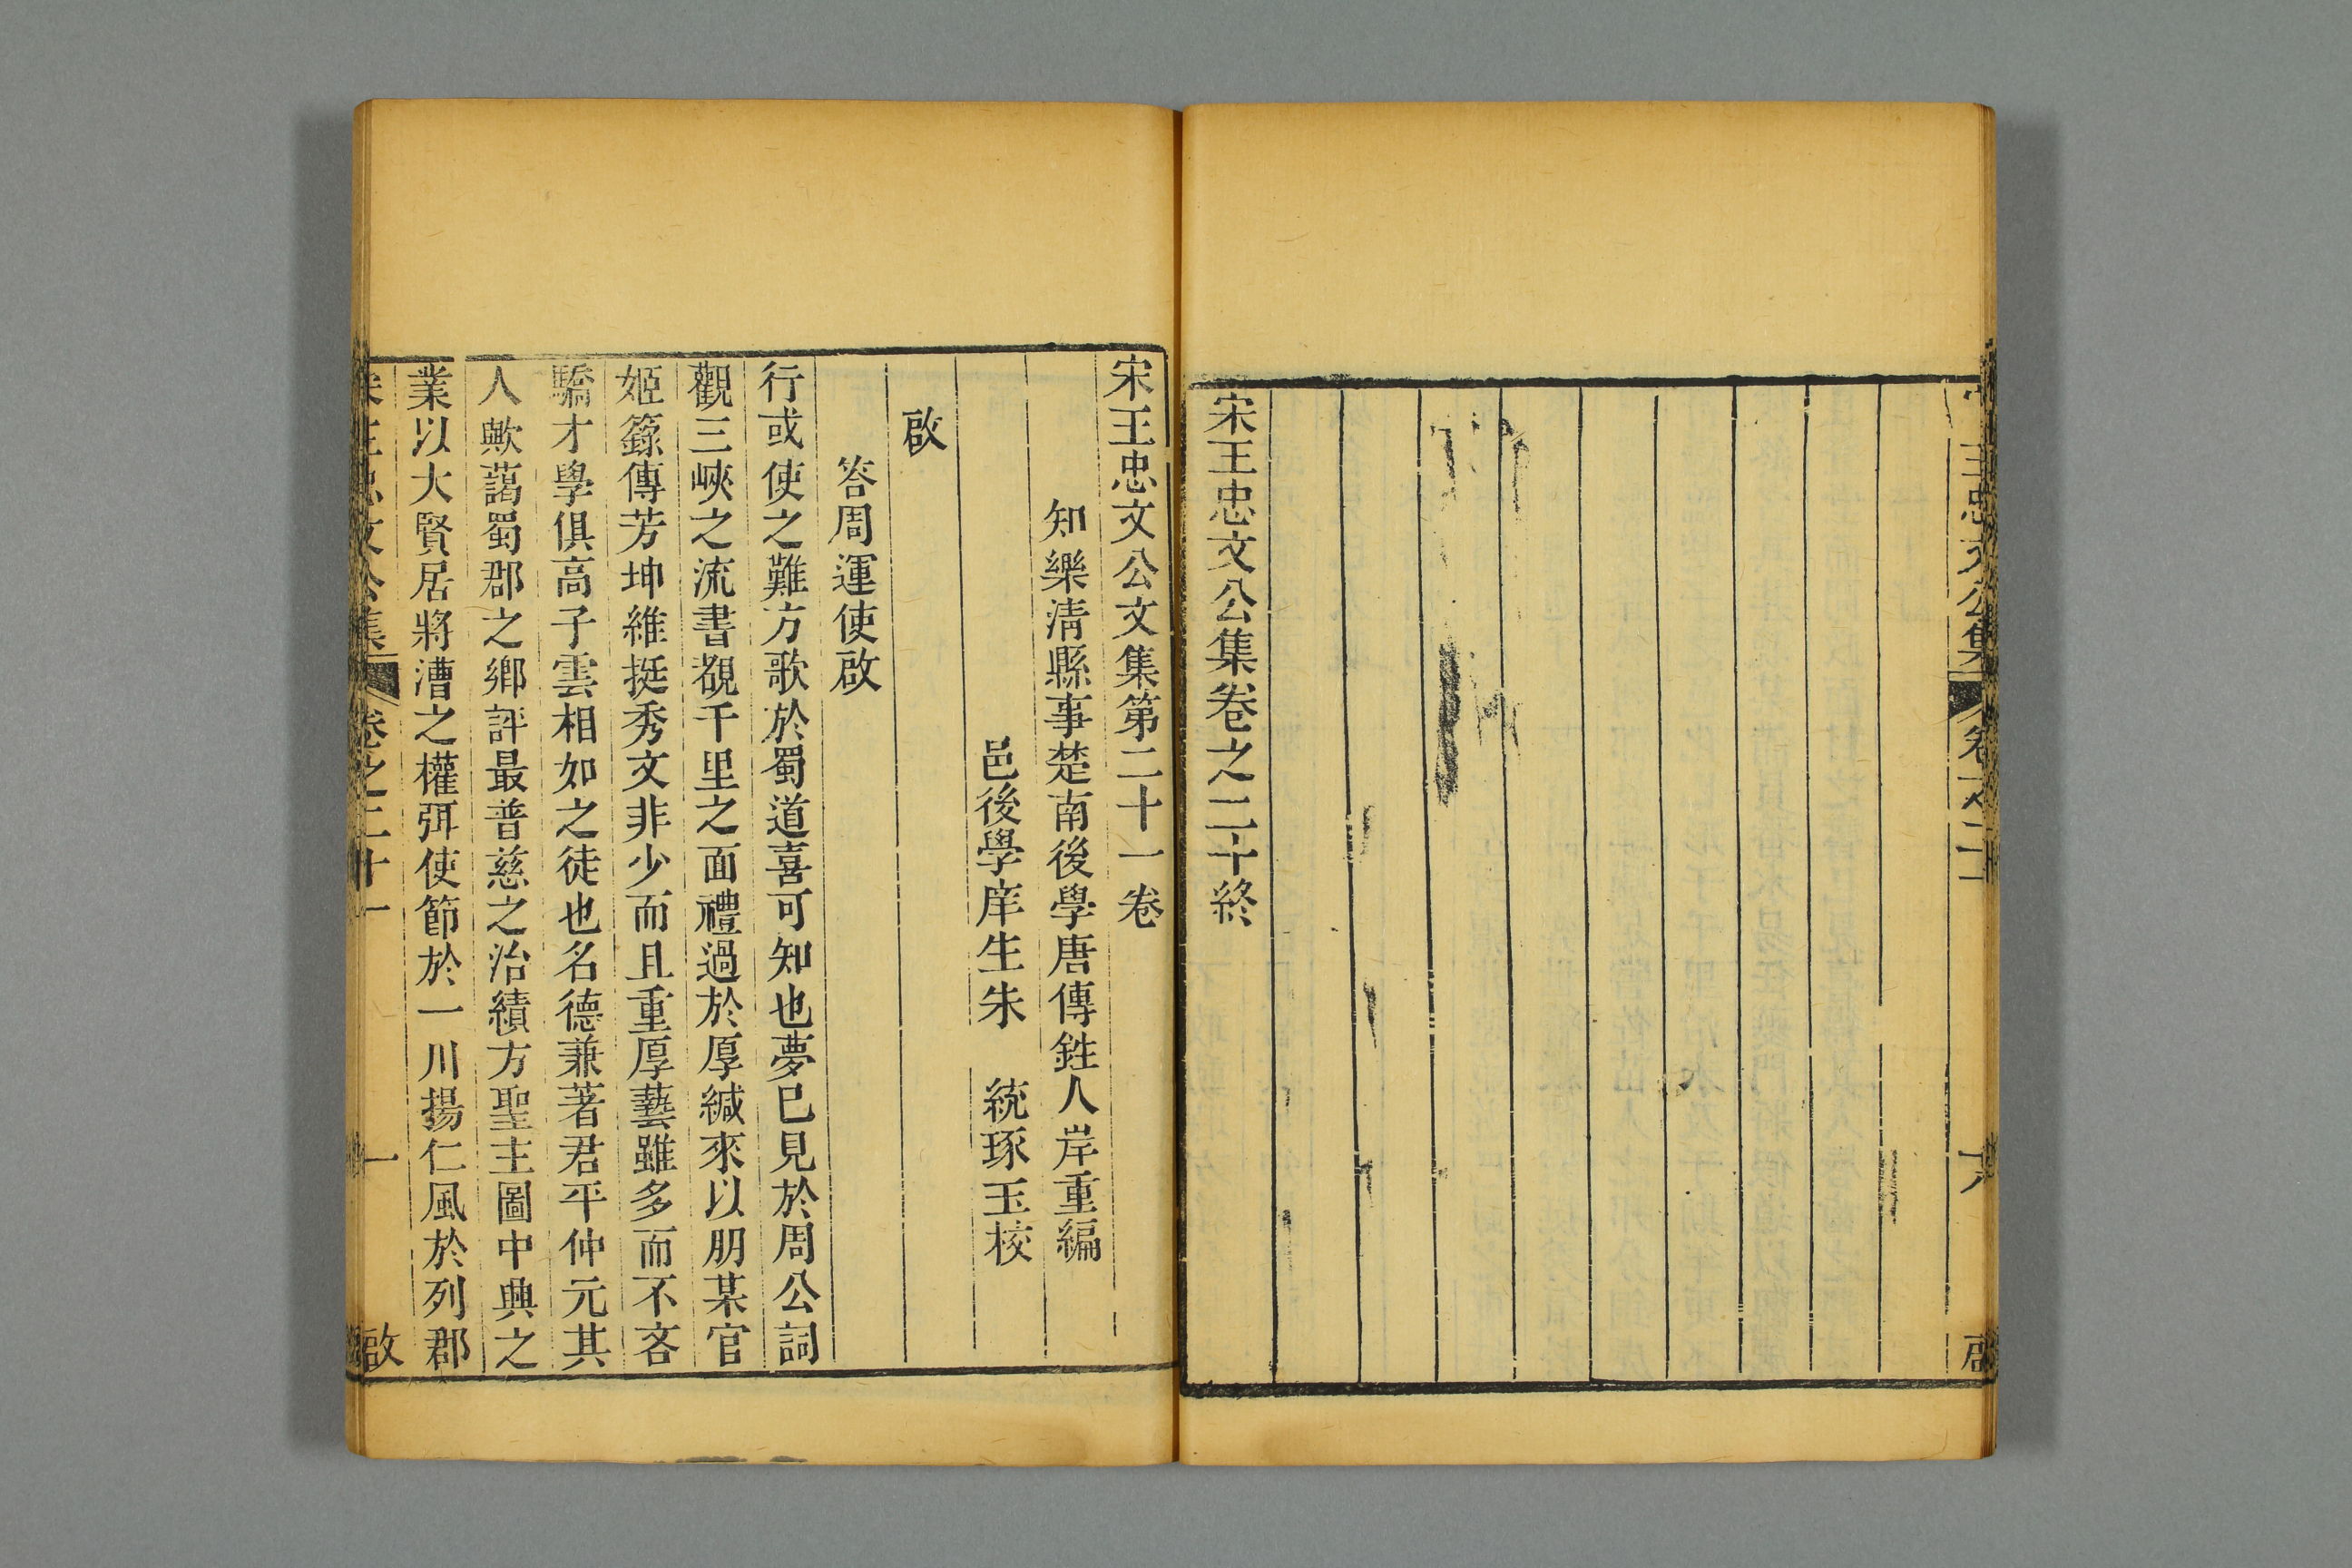 宋王忠文公集卷之二十終
宋王忠文公文集第二十一卷
知樂清縣事楚南後學唐傳鉎人岸重編
邑後學庠生朱　統琢玉校
啟
答周運使啟
行或使之難方歌於蜀道喜可知也夢已見於周公詞
觀三峽之流書覩千里之面禮過於厚緘來以朋某官
姬籙傳芳坤維挺秀文非少而且重厚藝雖多而不吝
驕才學俱高子雲相如之徒也名德兼著君平仲元其
人歟藹蜀郡之鄉評最普慈之治績方聖主圖中興之
業以大賢居將漕之權弭使節於一川揚仁風於列郡
宋王忠文公集　卷之二十一　一　啟